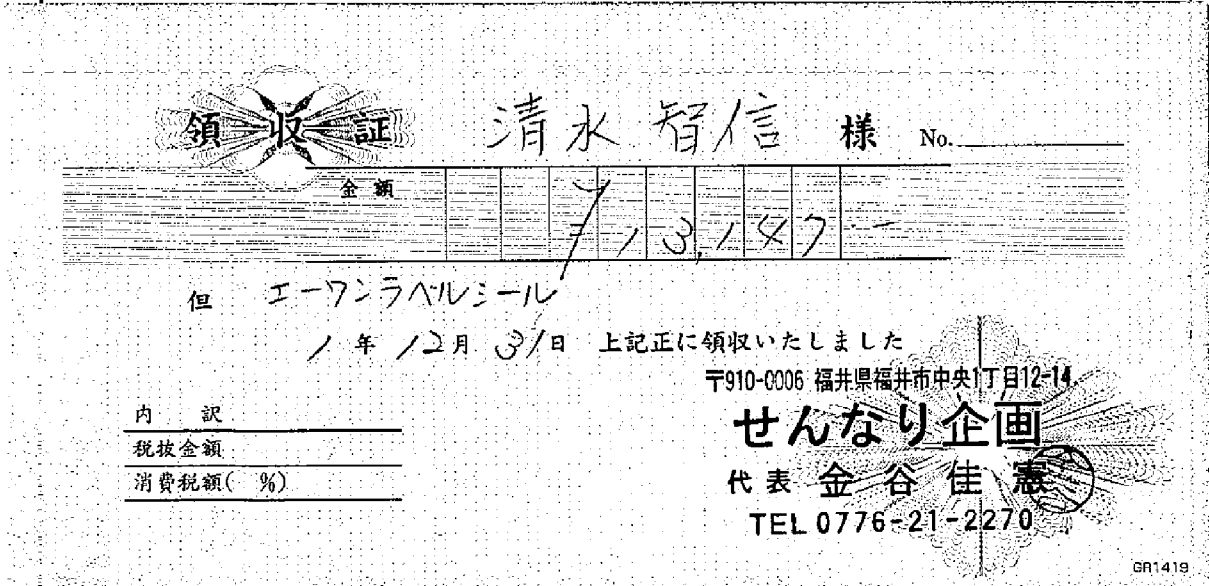 領収証 清水智信 様 No.
金額 ¥13,147-
但 エーワンラベルシール
1年12月31日 上記正に領収いたしました
〒910-0006 福井県福井市中央1丁目12-14
せんなり企画
代表 金谷佳憲
TEL 0776-21-2270
内訳
税抜金額
消費税額( %)
GR1419